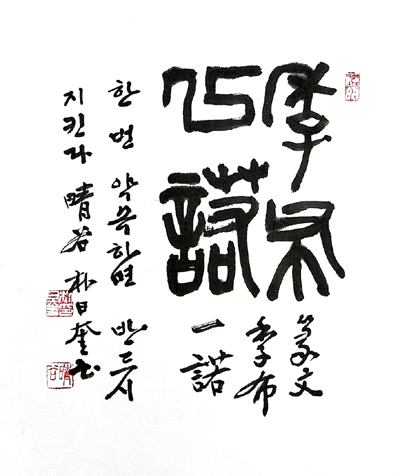 季布
一諾
篆文
季布
一諾
한번 약속하면 반드시
지킨다 晴谷 朴日奎 書